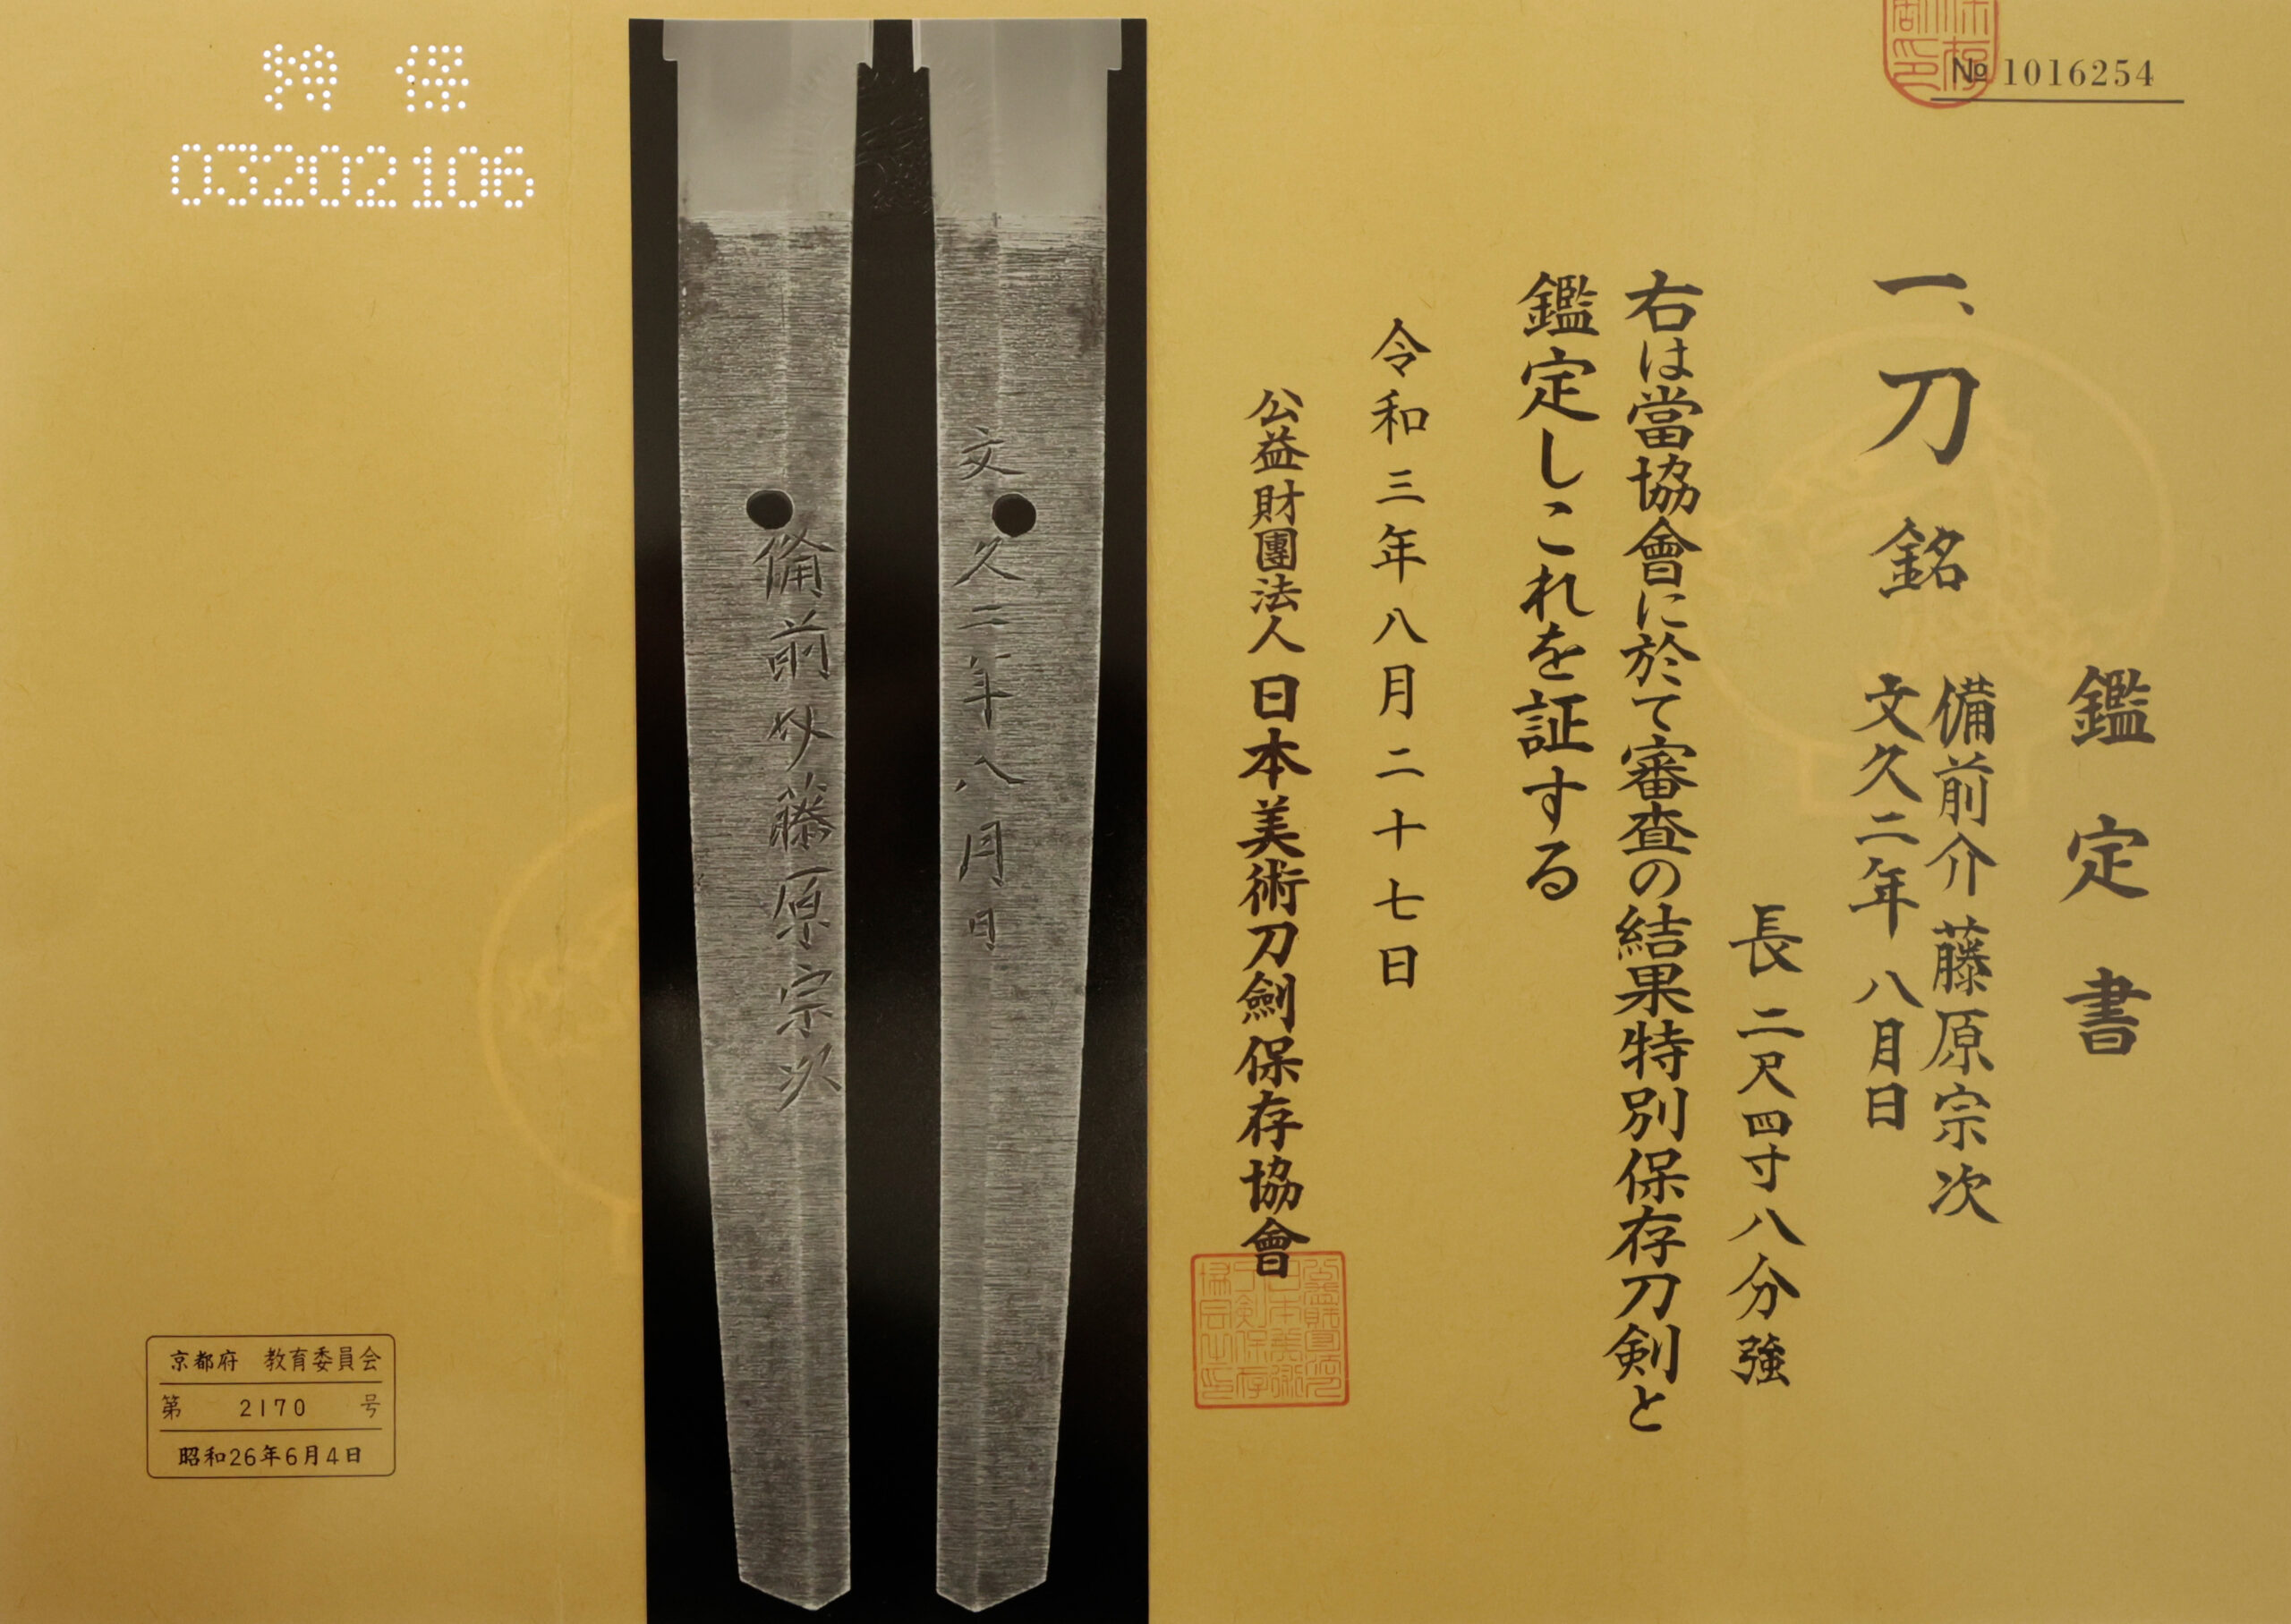 № 1016254
鑑定書
一、刀 銘
備前介藤原宗次
文久二年八月日
長 二尺四寸八分強
右は當協會に於て審査の結果特別保存刀剣と
鑑定しこれを証する
令和三年八月二十七日
公益財團法人 日本美術刀劍保存協會
文久二年八月日
備前介藤原宗次
特 保
03202106
京都府 教育委員会
第 2170 号
昭和26年6月4日